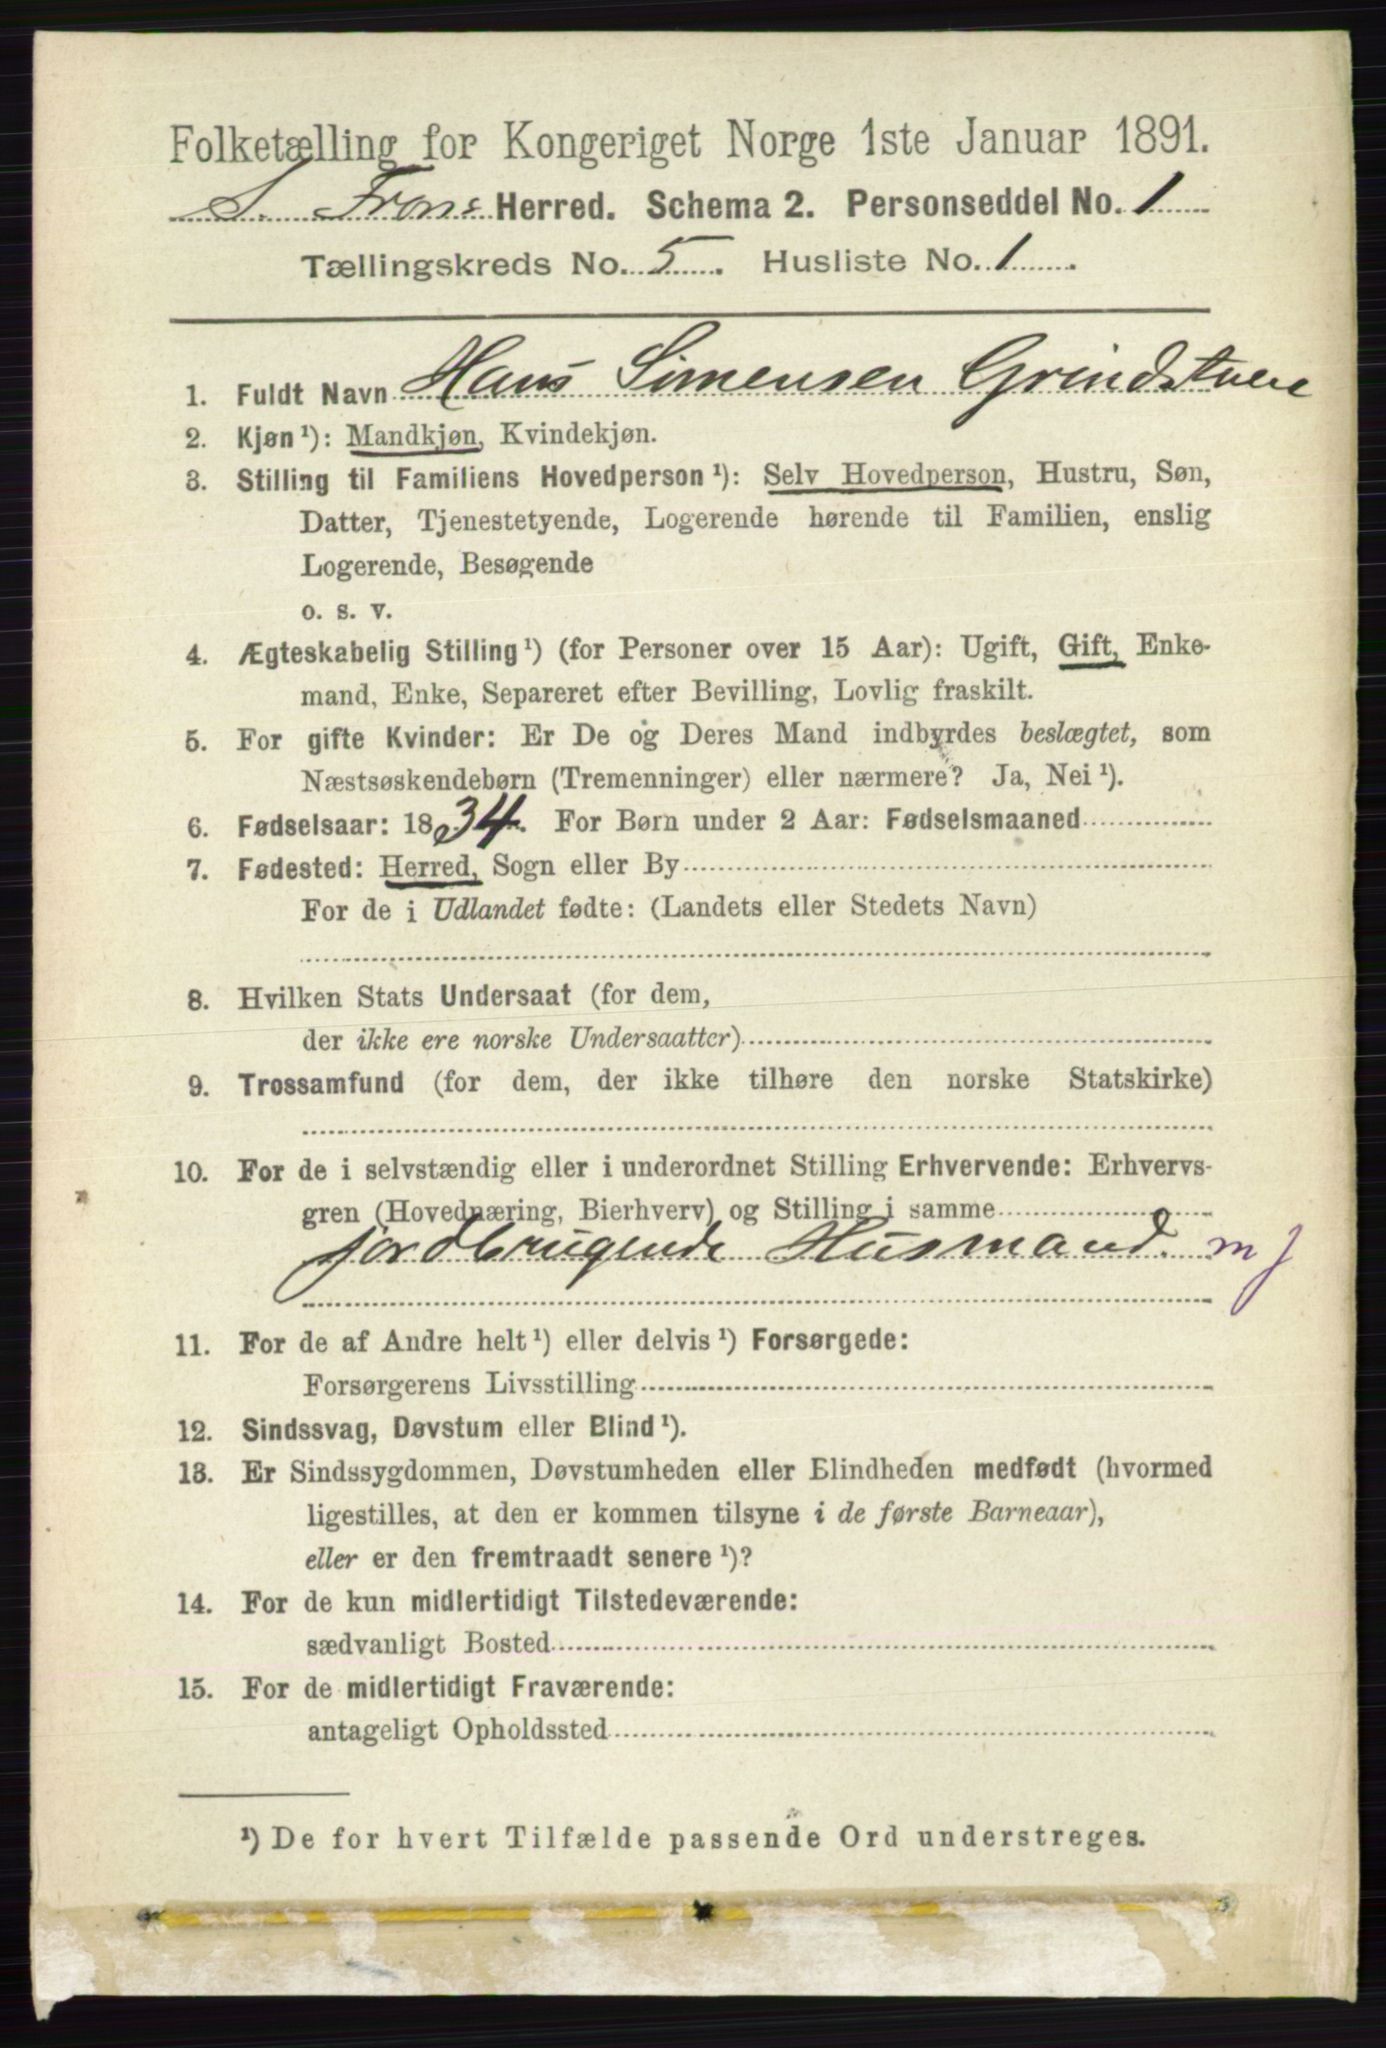 Folketælling for Kongeriget Norge 1ste Januar 1891.
S. Frons Herred. Schema 2. Personseddel No. 1
Tællingskreds No. 5. Husliste No. 1.
1. Fuldt Navn Hans Simensen Grindstuen
2. Kjøn¹): Mandkjøn, Kvindekjøn.
3. Stilling til Familiens Hovedperson¹): Selv Hovedperson, Hustru, Søn,
Datter, Tjenestetyende, Logerende hørende til Familien, enslig
Logerende, Besøgende
o. s. v.
4. Ægteskabelig Stilling¹) (for Personer over 15 Aar): Ugift, Gift, Enke-
mand, Enke, Separeret efter Bevilling, Lovlig fraskilt.
5. For gifte Kvinder: Er De og Deres Mand indbyrdes beslægtet, som
Næstsøskendebørn (Tremenninger) eller nærmere? Ja, Nei¹).
6. Fødselsaar: 1834. For Børn under 2 Aar: Fødselsmaaned
7. Fødested: Herred, Sogn eller By
For de i Udlandet fødte: (Landets eller Stedets Navn)
8. Hvilken Stats Undersaat (for dem,
der ikke ere norske Undersaatter)
9. Trossamfund (for dem, der ikke tilhøre den norske Statskirke)
10. For de i selvstændig eller i underordnet Stilling Erhvervende: Erhvervs-
gren (Hovednæring, Bierhverv) og Stilling i samme
jordbrugende Husmand. m j
11. For de af Andre helt¹) eller delvis¹) Forsørgede:
Forsørgerens Livsstilling
12. Sindssvag, Døvstum eller Blind¹).
13. Er Sindssygdommen, Døvstumheden eller Blindheden medfødt (hvormed
ligestilles, at den er kommen tilsyne i de første Barneaar),
eller er den fremtraadt senere¹)?
14. For de kun midlertidigt Tilstedeværende:
sædvanligt Bosted
15. For de midlertidigt Fraværende:
antageligt Opholdssted
¹) De for hvert Tilfælde passende Ord understreges.